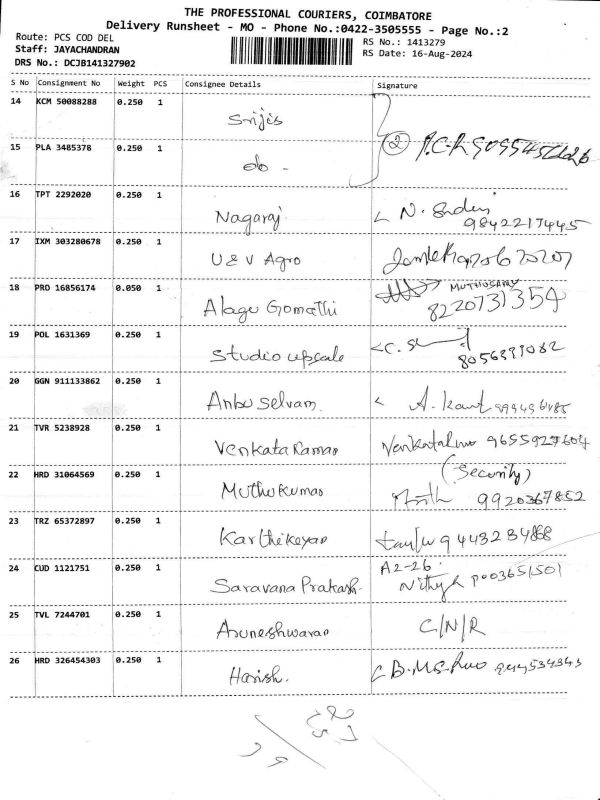 THE PROFESSIONAL COURIERS, COIMBATORE
Delivery Runsheet - MO - Phone No.:0422-3505555 - Page No.:2
Route: PCS COD DEL
RS No.: 1413279
Staff: JAYACHANDRAN
RS Date: 16-Aug-2024
DRS No.: DCJB141327902
S No Consignment No Weight PCS Consignee Details Signature
14 KCM 50088288 0.250 1 Srijis
15 PLA 3485378 0.250 1 do - 2
16 TPT 2292020 0.250 1 Nagaraj N. 9842217445
17 IXM 303280678 0.250 1 U & V Agro
18 PRO 16856174 0.050 1 Alagu Gomathi MUTHUSAMY 8220731354
19 POL 1631369 0.250 1 Studio upscale C.
20 GGN 911133862 0.250 1 Anbu selvam. A. Kant
21 TVR 5238928 0.250 1 Venkata Raman 9655927604
22 HRD 31064569 0.250 1 Muthu Kumar (Security) 9920367852
23 TRZ 65372897 0.250 1 Karthikeyan 9443234868
24 CUD 1121751 0.250 1 Saravana Prakash. A2-26.
25 TVL 7244701 0.250 1 Aruneshwaran C/N/R
26 HRD 326454303 0.250 1 Harish. B.M.S.